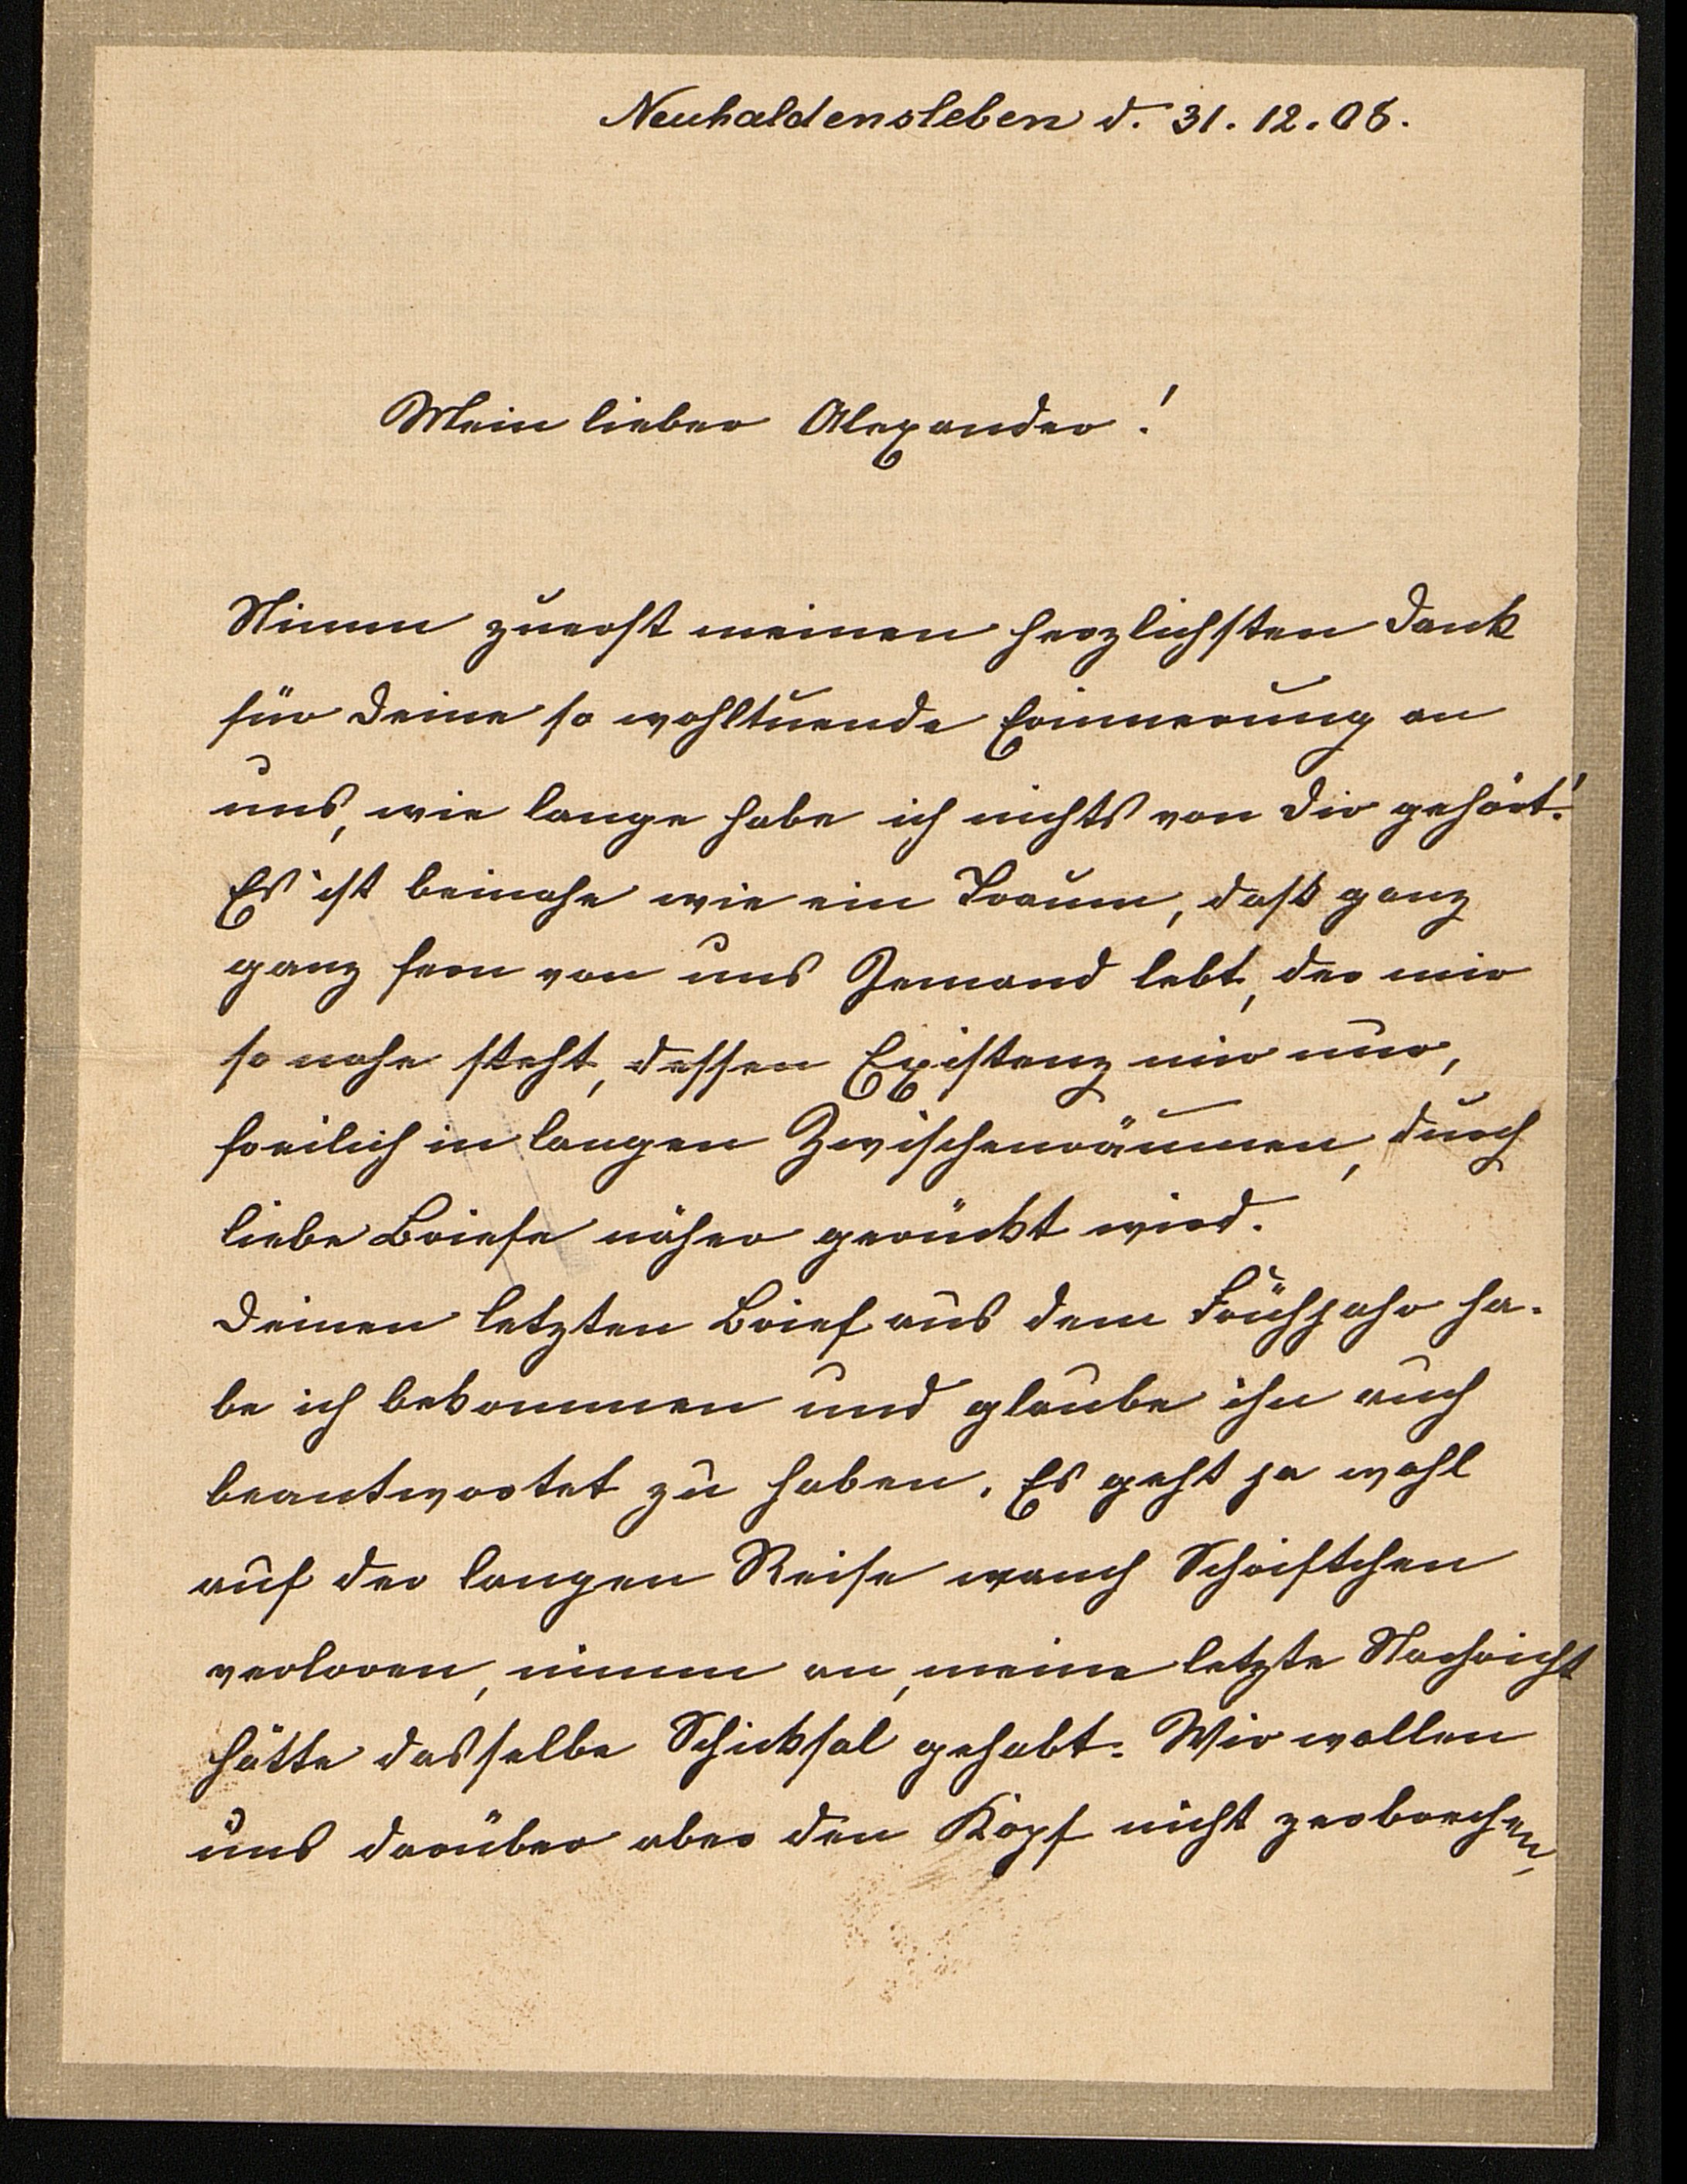 Neuhaldensleben d. 31.12.08.
Mein lieber Alexander!
Nimm zuerst meinen herzlichsten Dank
für Deine so wohltuende Erinnerung an
uns, wie lange habe ich nichts von Dir gehört!
Es ist beinahe wie ein Traum, dass ganz
ganz fern von uns Jemand lebt, der mir
so nahe steht, dessen Existenz mir nur,
freilich in langen Zwischenräumen, durch
liebe Briefe näher gerückt wird.
Deinen letzten Brief aus dem Frühjahr ha-
be ich bekommen und glaube ihn auch
beantwortet zu haben. Es geht ja wohl
auf der langen Reise manch Schriftchen
verloren, nimm an, meine letzte Nachricht
hätte dasselbe Schicksal gehabt. Wir wollen
uns darüber aber den Kopf nicht zerbrechen,